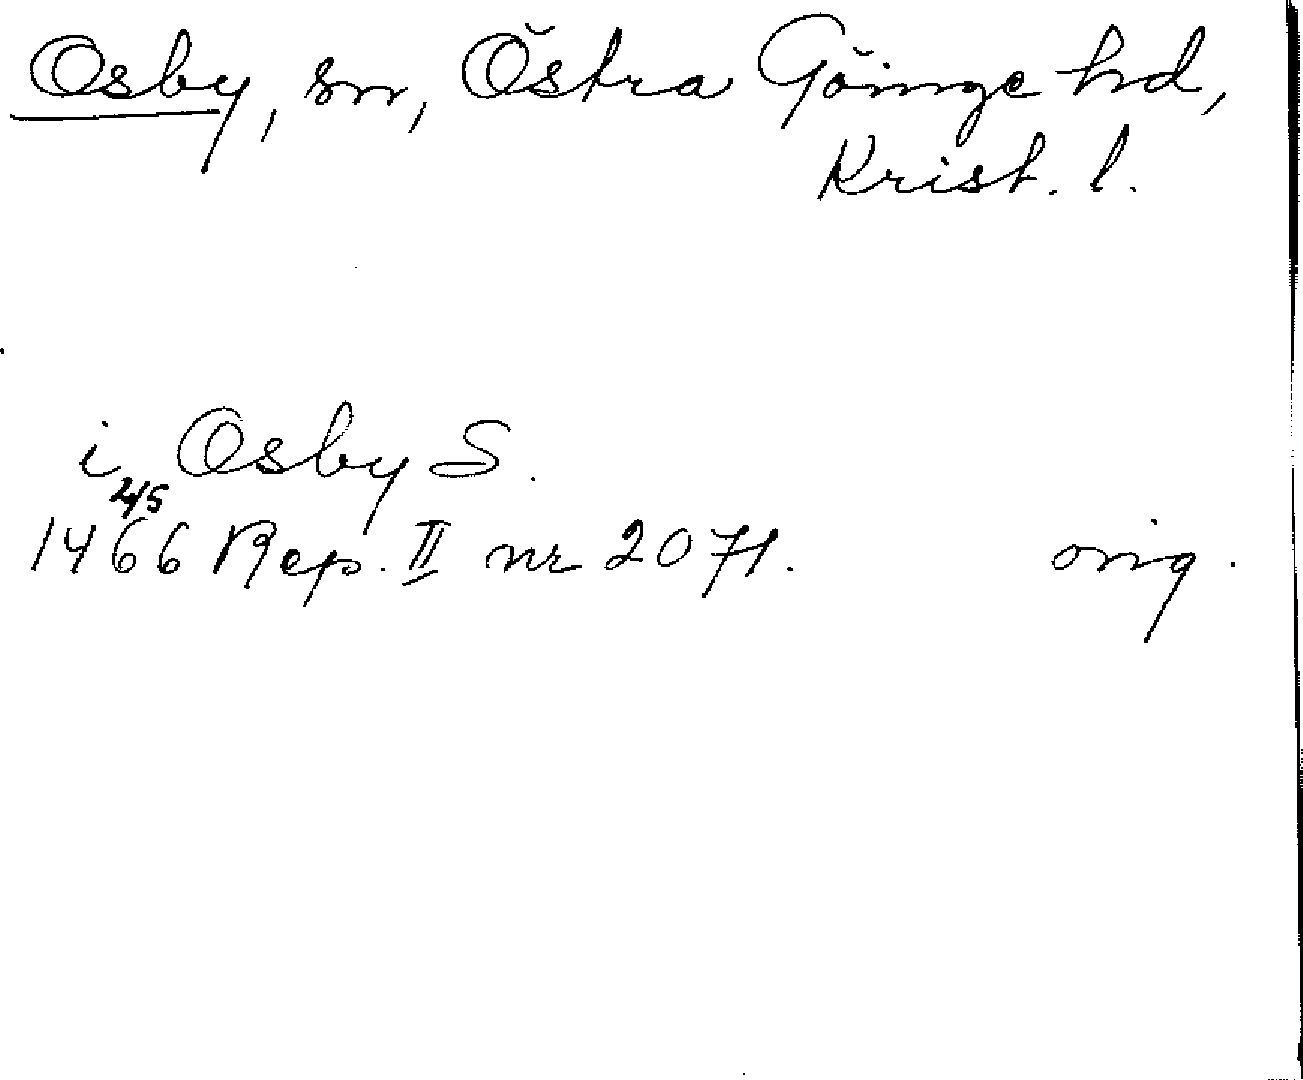 Osby, sn, Östra Göinge hd,
Krist. l.
i Osby S.
2/5
1466 Rep. II nr 2071. orig.